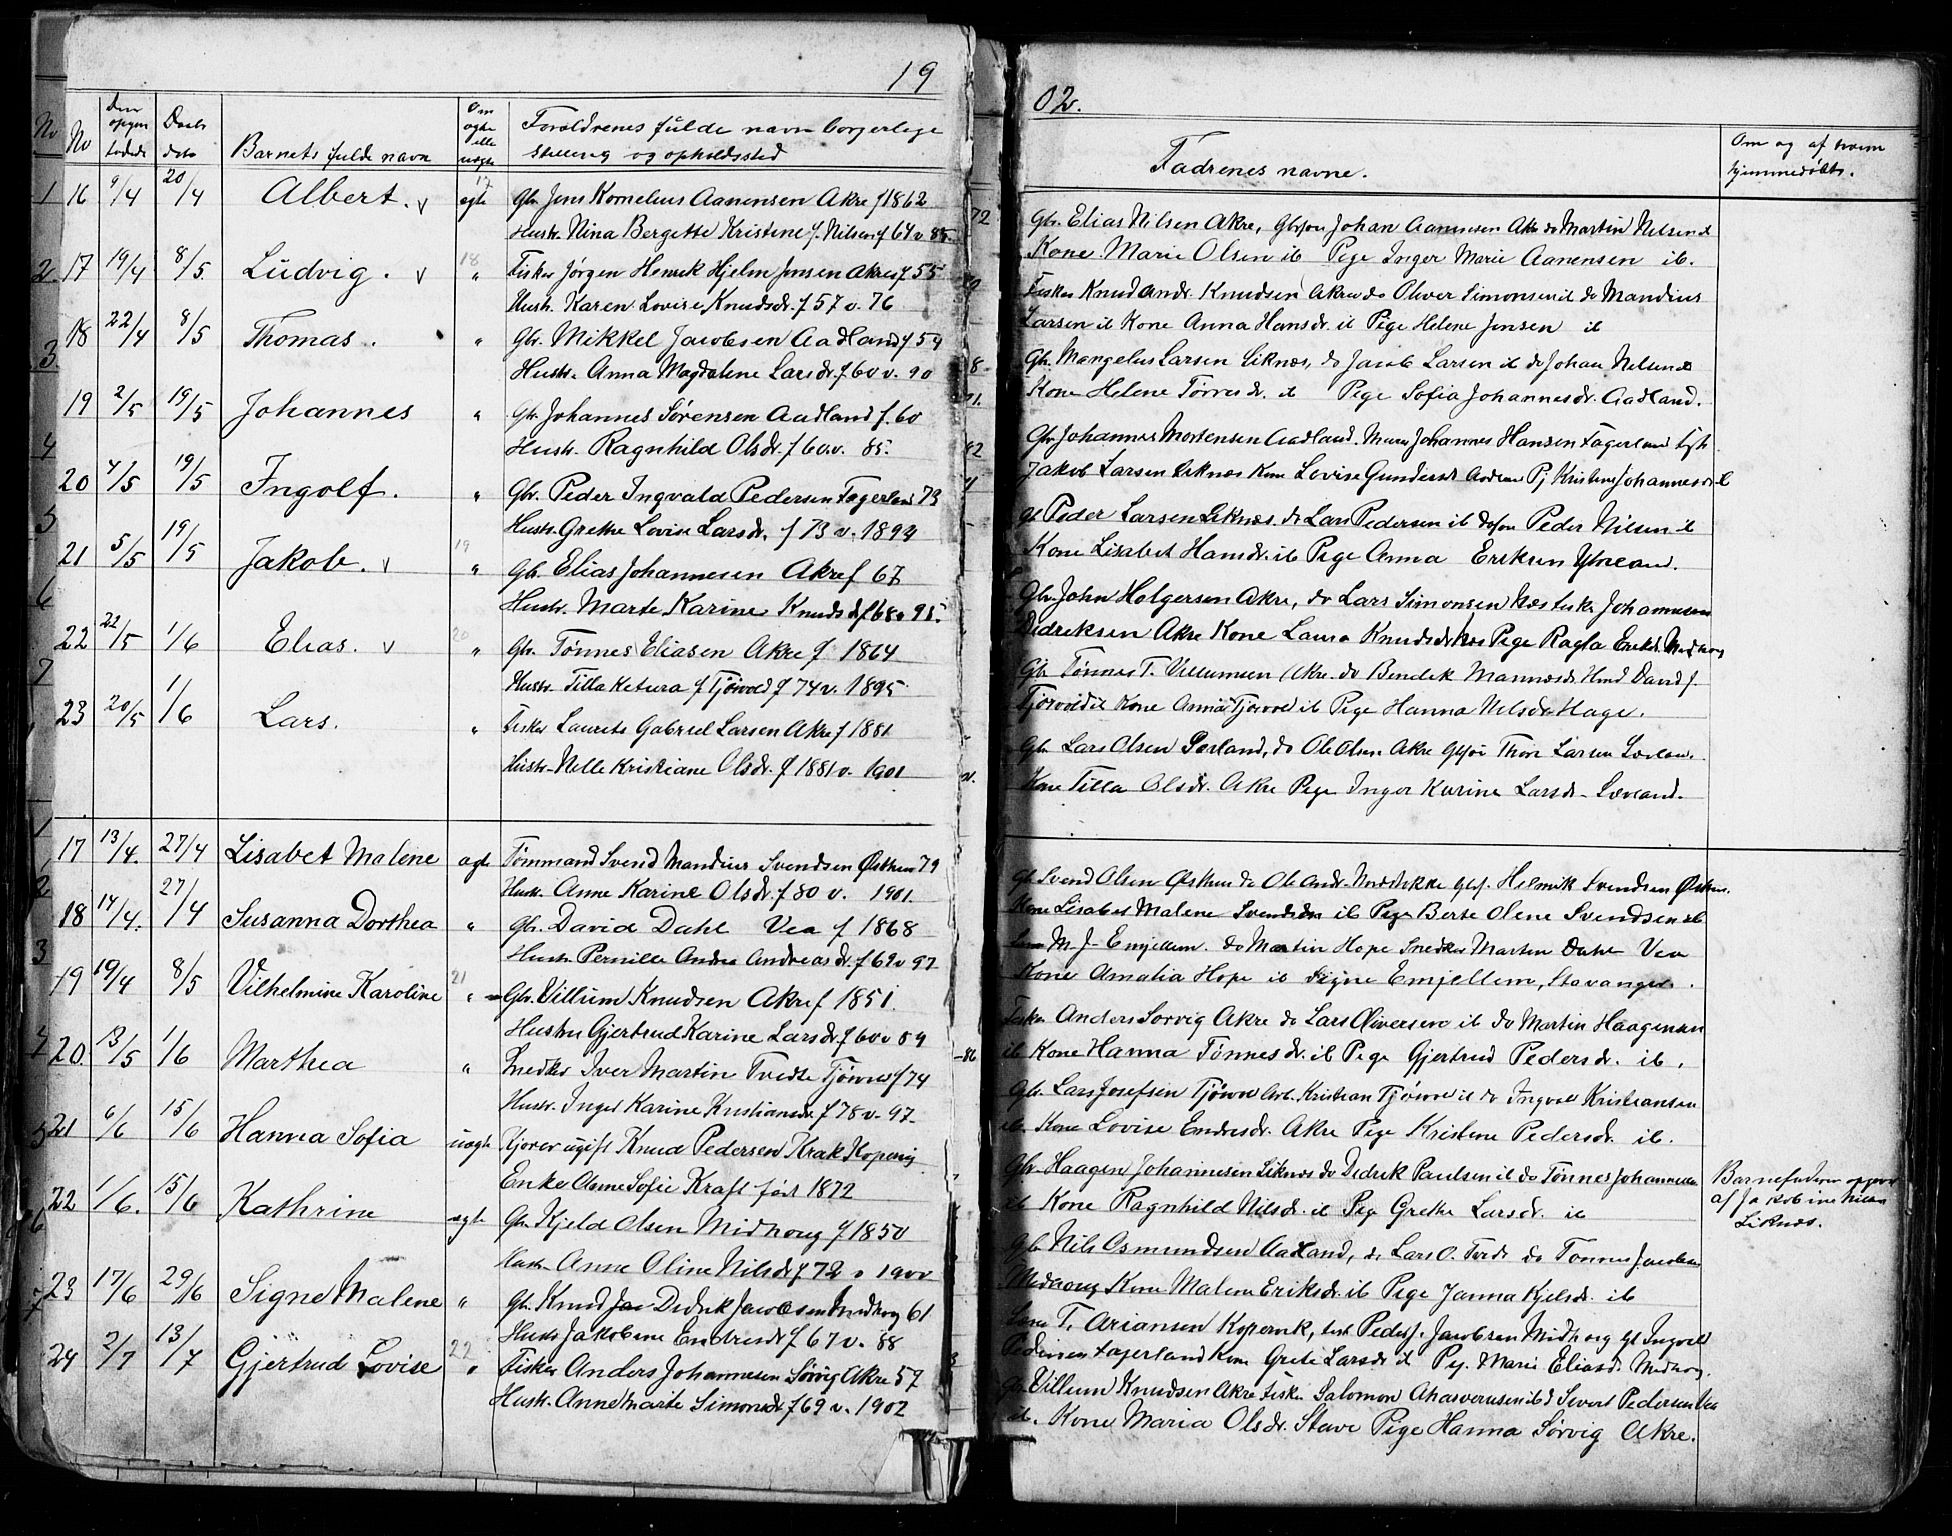 19
No No Den opgen fødede Daabs dato Barnets fulde navn Om ægte eller uægte Forældrenes fulde navn borgerlige
stilling og opholdssted
1 16 9/4 20/4 Albert. v ægte 17 Gbr. Jens Kornelius Aanensen Akre f 1862
Hustr. Nina Bergette Kristine f. Nilsen f 64 v. 85.
2. 17 19/4 8/5. Ludvig. v 18 " Fisker Jørgen Henrik Hjelm Jensen Akre f 55
Hustr. Karen Lovise Knudsdr. f 57 v. 76
3. 18 22/4 8/5 Thomas. " Gbr. Mikkel Jacobsen Aadland f 59
Hustr. Anna Magdalene Larsdr. f 60 v. 90
19 2/5 19/5 Johannes " Gbr. Johannes Sørensen Aadland f. 60
Hustr. Ragnhild Olsdr. f 60 v. 85.
4 20 4/5 19/5 Ingolf. " Gbr. Peder Ingvald Pedersen Fagerland 73
Hustr. Grethe Lovise Larsdr. f 73 v. 1894
5 21 5/5 19/5 Jakob. v 19 " Gbr. Elias Johannesen Akre f 67
Hustr. Marte Karine Knudsd f 68 v 95.
6 22 22/5 1/6 Elias. v 20 " Gbr. Tønnes Eliasen Akre f 1864
Hustr. Tilla Ketura f Tjøsvold f 74 v. 1895
7 23 20/5 1/6 Lars. " Fisker Laurits Gabriel Larsen Akre f 1881
Hustr. Nelle Kristiane Olsdr. f 1881 v. 1901
1 17 13/4. 27/4 Lisabet Malene ægte Tømmand Svend Mandius Svendsen Østhus 79
Hustr. Anne Karine Olsdr. f 80 v. 1901.
2 18 14/4. 27/4 Susanna Dorthea " Gbr. David Dahl Vea f 1868
Hustr. Pernille Andrea Andreasdr. f 69 v 97
3 19 19/4 8/5 Vilhelmine Karoline 21 " Gbr. Villum Knudsen Akre f 1851
Hustru Gjertrud Karine Larsdr. f 60 v 84
4 20. 13/5 1/6 Marthea " Snedker Iver Martin Tvedte Tjøsvol f 74
Hustr. Inger Karine Kristiansdr f 78 v. 97
5 21 6/6 15/6 Hanna Sofia uægte Kjører ugift Knud Pedersen Krak Kopervig
Enke Anne Sofie Kraft født 1872
6 22 1/6. 15/6 Kathrine ægte Gbr. Kjeld Olsen Midhoug f 1850
Hustr. Anne Oline Nilsdr f 72 v 1900
7 23 17/6 29/6 Signe Malene " Gbr. Knud Didrik Jacobsen Midhoug 61
Hustr Jakobine Endresdr f 67 v. 88
24 2/7 13/7 Gjertrud Lovise 22 " Fisker Anders Johannesen Sørvig Akre 57
Hustr. Anne Marte Simonsdr f 69 v. 1902
02.
Fadrenes navne. Om og af hvem hjemmedøbt.
Gbr. Elias Nilsen Akre, Gbrsøn Johan Aanensen Akre do Martin Nilsen
Kone Marie Olsen ib Pige Inger Marie Aanensen ib.
Fisker Knud Andr. Knudsen Akre do Oliver Simonsen ib do Mandius
Larsen ib Kone Anna Hansdr. ib Pige Helene Jensen ib
Gbr. Mangelus Larsen Liknæs, do Jacob Larsen ib do Johan Nilsen
Kone Helene Tørresdr. ib Pige Sofia Johannesdr. Aadland.
Gbr Johannes Mortensen Aadland. Johannes Hansen Fagerland
Jakob Larsen Liknæs Kone Lovise Gundersdr Pj Kristine Johannesdr ib
Peder Larsen Liknæs. do Lars Pedersen ib Peder Nilsen ib
Kone Lisabet Hansdr. ib Pige Anna Eriksen
Gbr. John Holgersen Akre, do Lars Simonsen Næs Fisker Johannesen
Didriksen Akre Kone Laura Knudsdr Næs Pige Ragla
Gbr Tønnes T. Villumsen Akre. do Bendik Mannæsdr David J.
Tjøsvold ib Kone Anna Tjøsvol ib Pige Hanna Nilsdr Hage.
Gbr Lars Olsen Sævland, do Ole Olsen Akre Gbsøn Thore Larsen Sævlan.
Kone Tilla Olsdr. Akre Pige Inger Karine Larsdr. Sævland.
Gb Svend Olsen Østhus do Ole Andr. Helmik Svendsen Østhus.
Kone Lisabet Malene Svendsdr ib Pige Berte Olene Svendsen ib
M. J. Emjellem. do Martin Hope Snedker Martin Dahl Vea
Kone Amalia Hope ib Signe Emjellem, Stavanger.
Fisker Anders Sørvig Akre do Lars Oliversen ib do Martin Haagensen
ib Kone Hanna Tønnesdr. ib Pige Gjertrud Pedersdr. ib.
Gbr. Lars Josefsen Tjøsvol Arb. Kristian Tjøsvol ib do Ingvol Kristiansen
ib. Kone Lovise Endresdr. Akre Pige Kristine Pedersdr. ib.
Gbr. Haagen Johannesen Liknæs do Didrik Paulsen ib do Tønnes Johannesen
ib Kone Ragnhild Nilsdr. ib Pig Grethe Larsdr. ib
Barnefaderen opgivet af Jakobine Nilsen Liknæs.
Gbr Nils Osmundsen Aadland, do Lars O. Tvedt do Tønnes Jacobsen
Midhoug Kone Malene Eriksdr. ib Pige Janna Kjelsdr. ib
T. Ariansen Kopervik, Peder J. Jacobsen Midhoug Gb Ingvald
Pedersen Fagerland Kone Grete Larsdr ib Pig. Marie Eliasdr. Midhoug
Gbr. Villum Knudsen Akre Fisker Salomon Ahasverusen ib do Sivert Pedersen Vea
ib. Kone Maria Olsdr. Stave Pige Hanna Sørvig Akre.